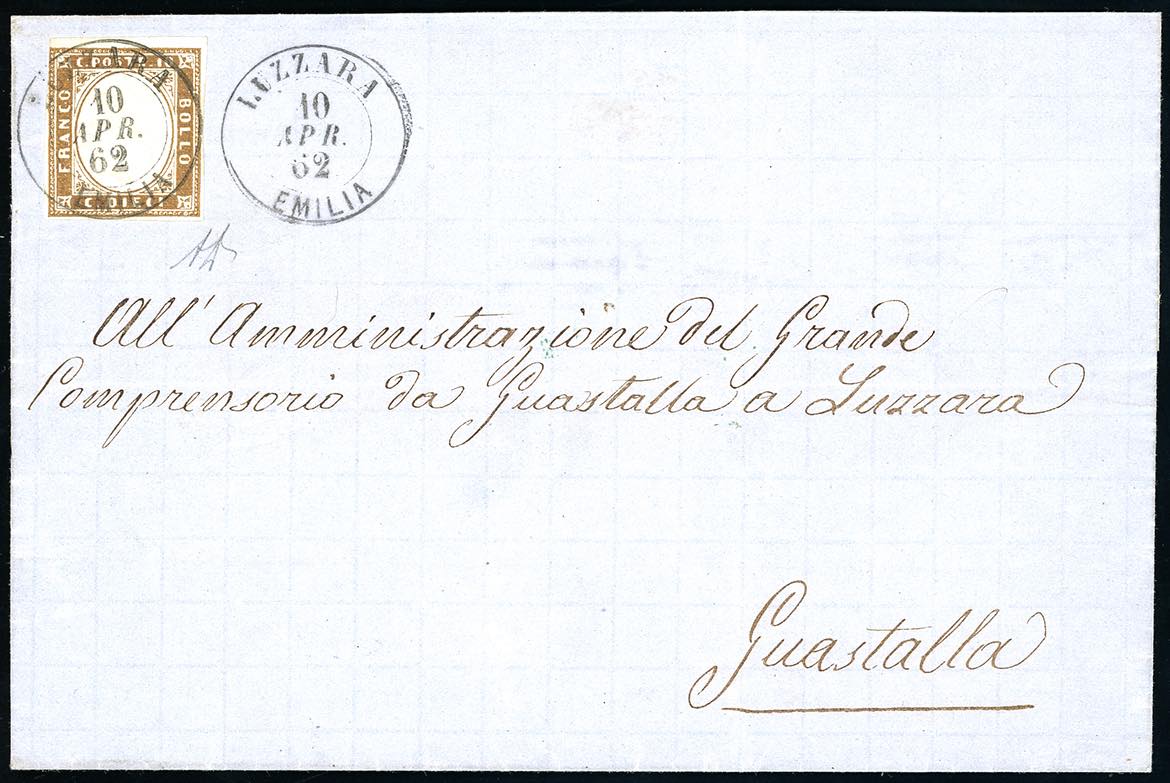 C. POSTE 10
FRANCO
BOLLO
C. DIECI
LUZZARA
10
APR.
62
EMILIA
LUZZARA
10
APR.
62
EMILIA
All' Amministrazione del Grande
Comprensorio da Guastalla a Luzzara
Guastalla